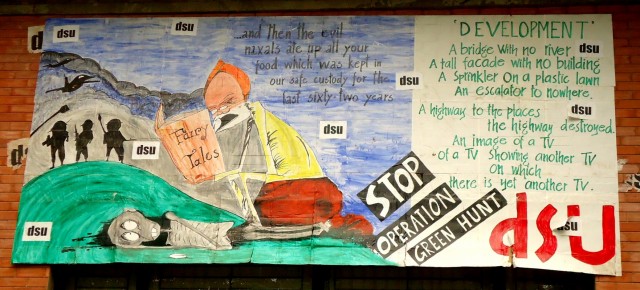 ...and then the evil
naxals ate up all your
food which was kept in
our safe custody for the
last sixty-two years
Fairy
Tales
STOP
OPERATION
GREEN HUNT
"DEVELOPMENT"
A bridge with no river
A tall facade with no building
A Sprinkler on a plastic lawn
An escalator to nowhere.
A highway to the places
the highway destroyed.
An image of a TV
of a TV showing another TV
on which
there is yet another TV.
dsu
dsu
dsu
dsu
dsu
dsu
dsu
dsu
dsu
dsu